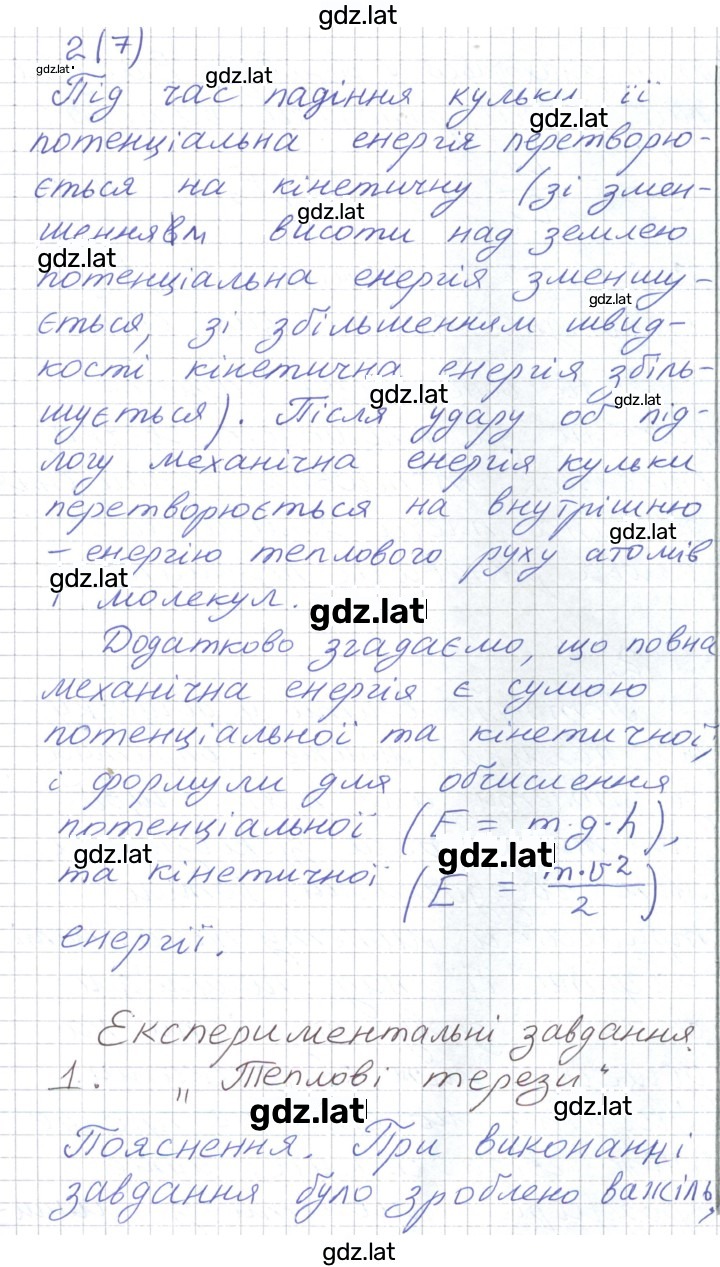 gdz.lat
2(7)
gdz.lat
gdz.lat
Під час падіння кульки її
gdz.lat
потенціальна енергія перетворю-
ється на кінетичну (зі змен-
gdz.lat
шенням висоти над землею
gdz.lat
потенціальна енергія зменшу-
gdz.lat
ється, зі збільшенням швид-
кості кінетична енергія збіль-
gdz.lat
gdz.lat
шується). Після удару об під-
логу механічна енергія кульки
перетворюється на внутрішню
gdz.lat
– енергію теплового руху атомів
gdz.lat
і молекул.
gdz.lat
Додатково згадаємо, що повна
механічна енергія є сумою
потенціальної та кінетичної,
і формули для обчислення
потенціальної (E = m·g·h),
gdz.lat
gdz.lat
та кінетичної (E = m·v²/2)
енергії.
Експериментальні завдання.
1. „Теплові терези“
gdz.lat
gdz.lat
Пояснення. При виконанні
завдання було зроблено важіль,
gdz.lat